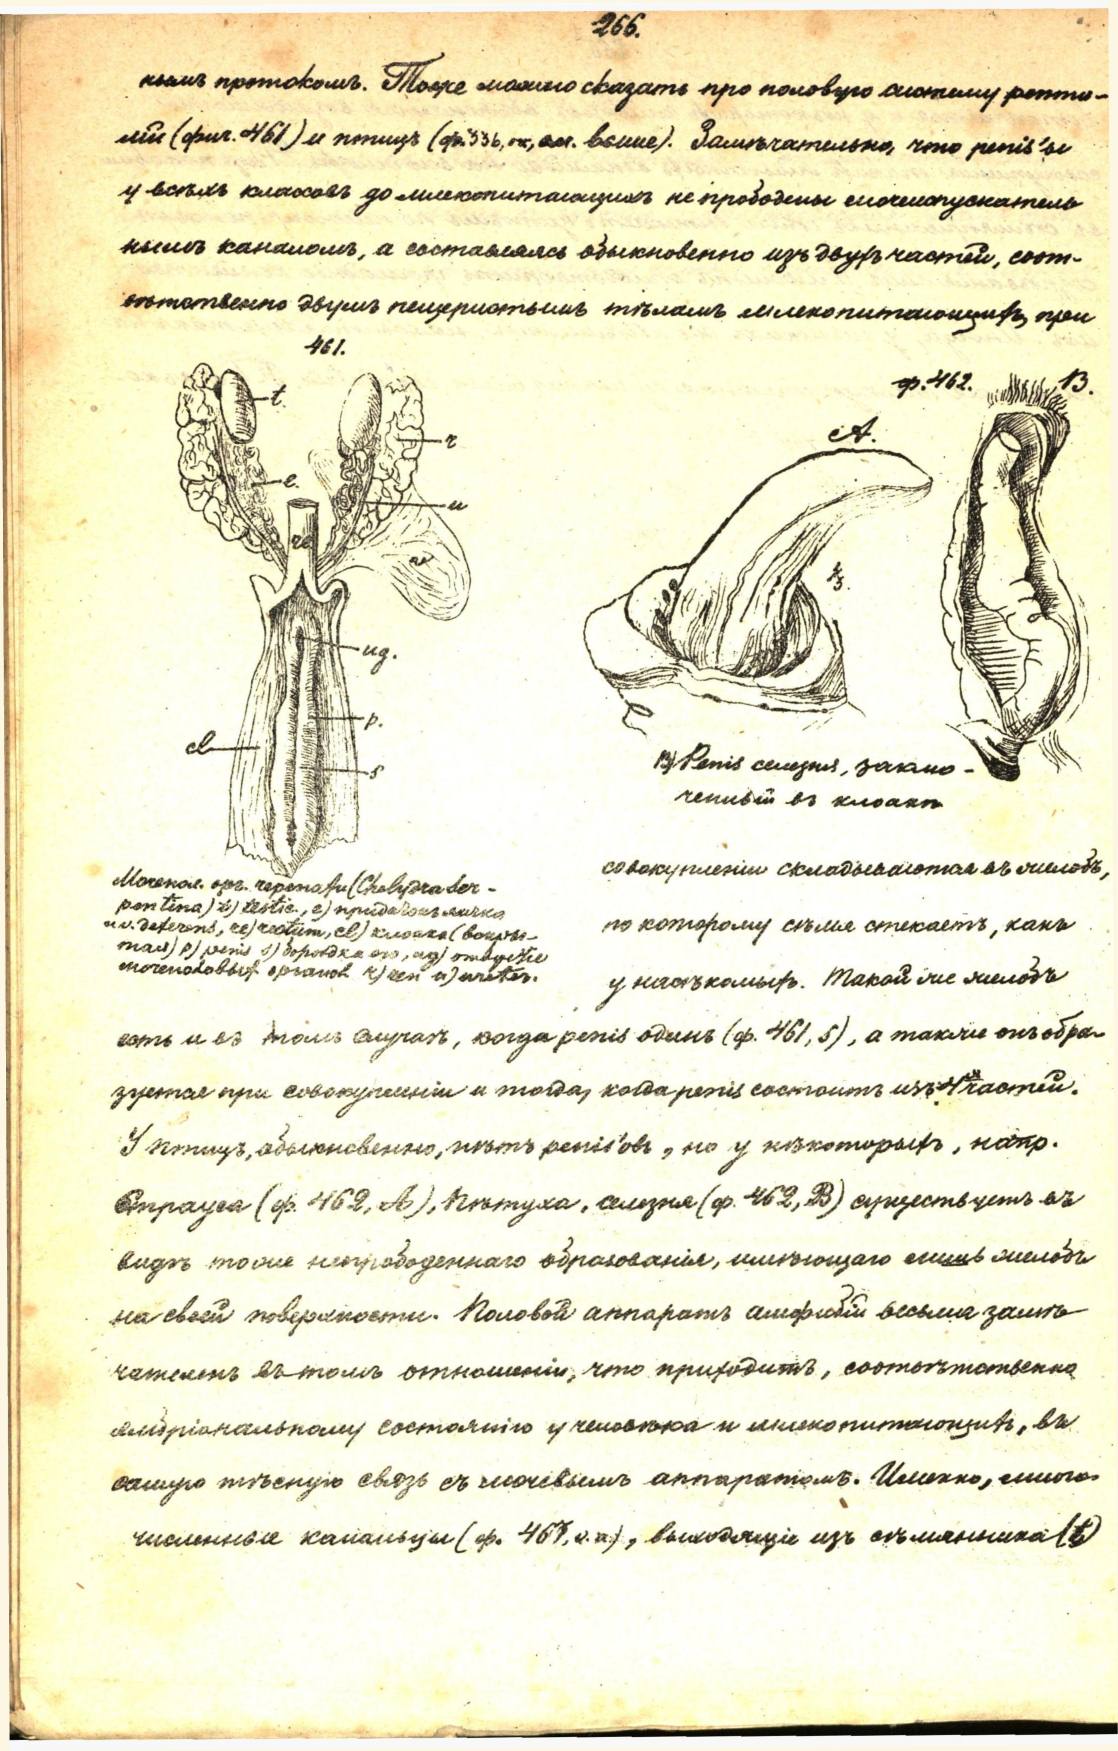 266.
нымъ протокомъ. Тоже можно сказать про половую систему репти-
лій (фиг. 461) и птицъ (ф. 336, см. выше). Замѣчательно, что penis'ы
у всѣхъ классовъ до млекопитающихъ не прободены мочеиспускатель
нымъ каналомъ, а составляясь обыкновенно изъ двухъ частей, соот-
вѣтственно двумъ пещеристымъ тѣламъ млекопитающихъ, при
461.
ф. 462.
B.
A.
t.
r
e.
u
re
ug.
p.
cl
s
⅓.
B) Penis селезня, заклю-
ченный въ клоакѣ
Мочепол. орг. черепахи (Chelydra ser-
pentina) t) testic., e) придатокъ яичка
u v. deferens, re) rectum, cl) клоака (вскры-
тая) p) penis s) бороздка его, ug) отверстіе
мочеполовыхъ органов r) ren u) ureter.
совокупленіи складываются въ желобъ,
по которому сѣмя стекаетъ, какъ
у насѣкомыхъ. Такой же желобъ
есть и въ томъ случаѣ, когда penis одинъ (ф. 461, s), а также онъ обра-
зуется при совокупленіи и тогда, когда penis состоитъ изъ 4хъ частей.
У птицъ, обыкновенно, нѣтъ penis'овъ, но у нѣкоторыхъ, напр.
Страуса (ф. 462, A), Пѣтуха, селезня (ф. 462, B) существуетъ въ
видѣ тоже непрободеннаго образованія, имѣющаго лишь желобъ
на своей поверхности. Половой аппаратъ амфибій весьма замѣ-
чателенъ въ томъ отношеніи, что приходитъ, соотвѣтственно
эмбріональному состоянію у человѣка и млекопитающихъ, въ
самую тѣсную связь съ мочевымъ аппаратомъ. Именно, много-
численные канальцы (ф. 467, выходящіе изъ сѣмянника (t)